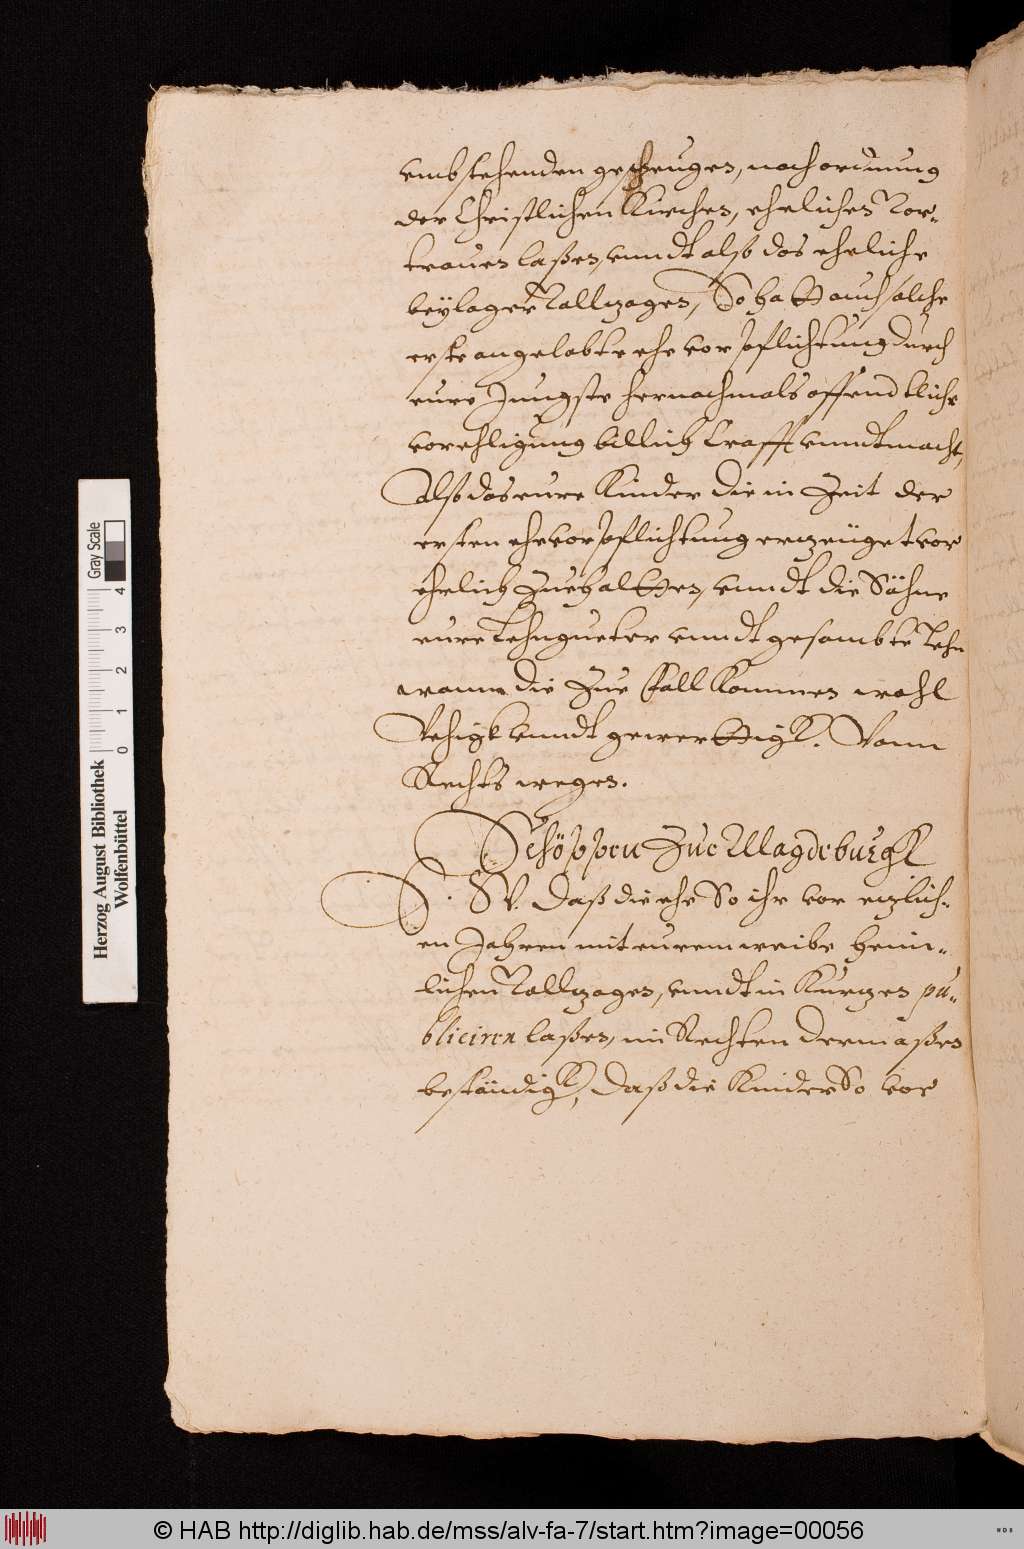 umbstehenden gezeuges, nach ordnung
der Christlichen Kirchen, ehelichen Vor-
trauen laßen, unndt also das eheliche
beylager Vollzogen, So hatt auch solche
erste angelobte ehe vorpflichtung durch
eure Jungste hernachmals offendtliche
vorehligung billich Crafft unndt macht,
Also das eure Kinder die in Zeit der
ersten ehevorpflichtung erzeüget vor
ehelich Zuehaltten, unndt die Söhne
eure Lehngueter unndt gesambte Lehn
wann die Zue Fall kommen wohl
Vehigk unndt gewerttigk. Vonn
Rechts wegen.
Schöppen Zue Magdeburgk
S. W. Daß die ehe So ihr vor etzlich-
en Jahren mit eurem weibe heim-
lichen Vollzogen, unndt in Kurtzen pu-
bliciren laßen, in Rechten dermaßen
bestendigk, Daß die Kinder So vor
Herzog August Bibliothek
Wolfenbüttel
0 1 2 3 4
Gray Scale
© HAB http://diglib.hab.de/mss/alv-fa-7/start.htm?image=00056